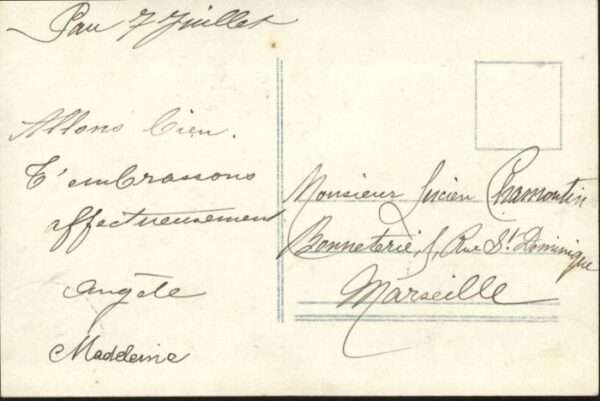 Pau 7 Juillet
Allons bien.
T'embrassons
affectueusement
Angèle
Madeleine
Monsieur Lucien Chamontin
Bonneterie, 1, Rue St. Dominique
Marseille